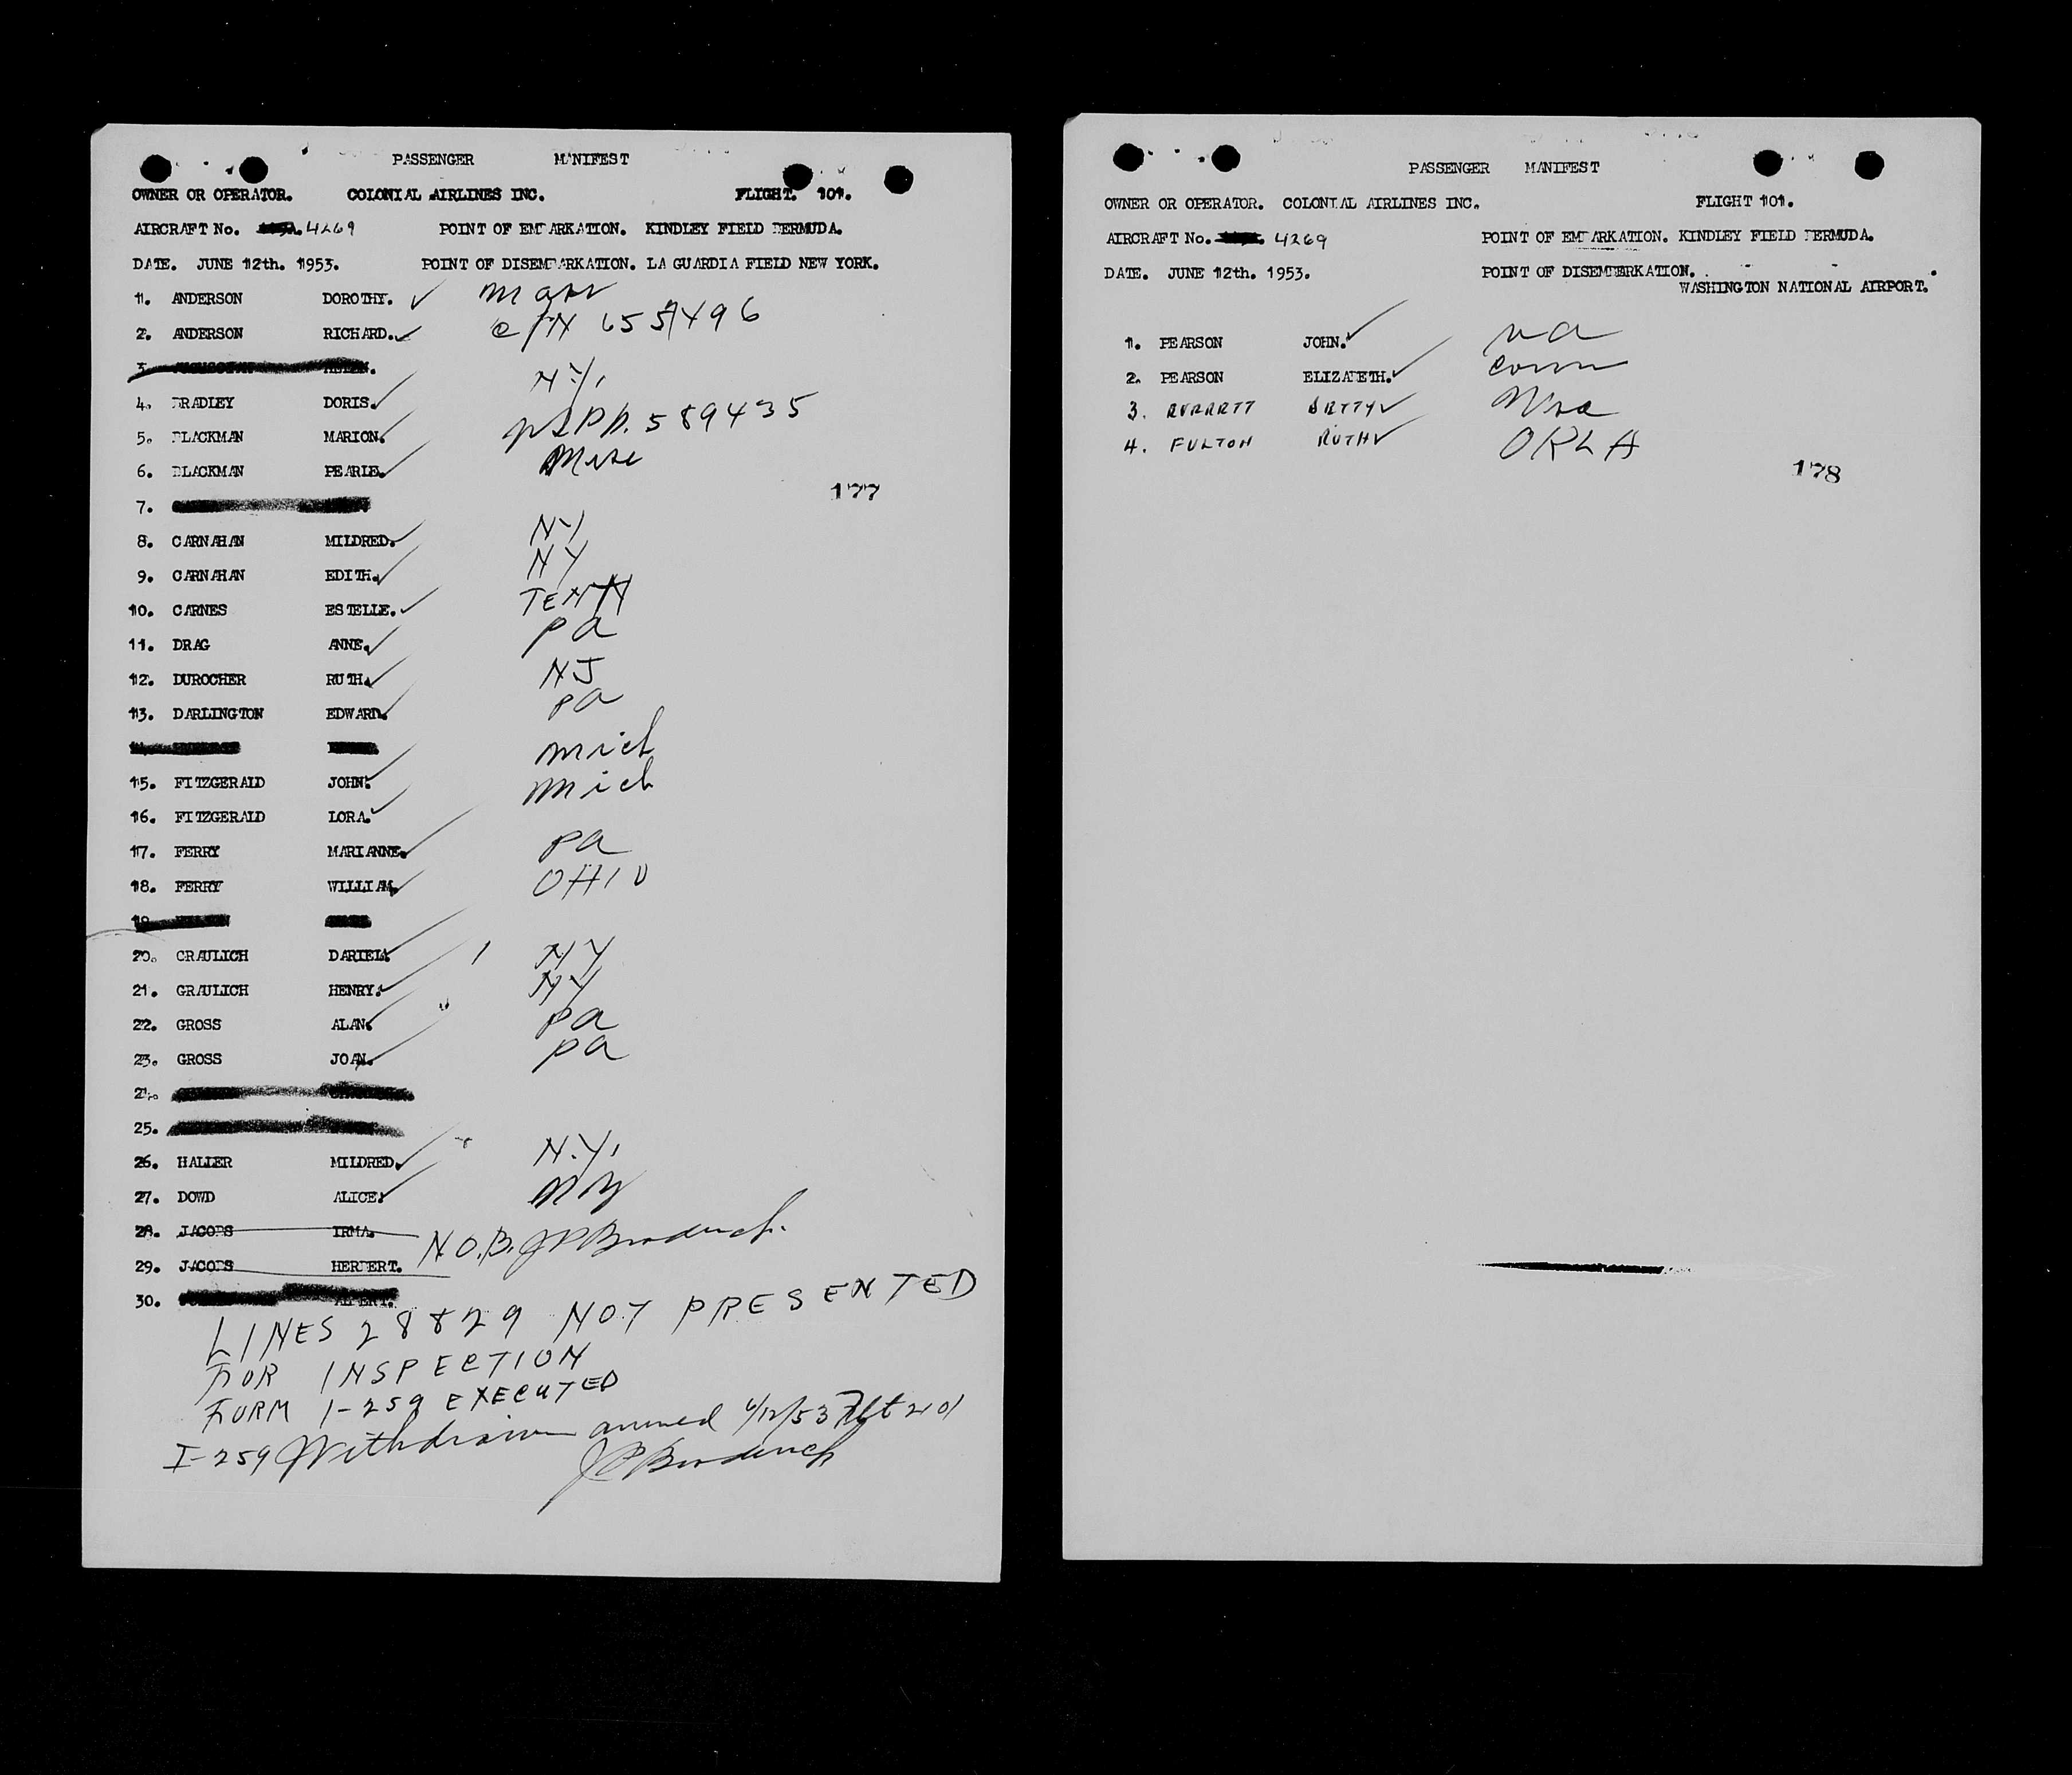 PASSENGER MANIFEST
OWNER OR OPERATOR. COLONIAL AIRLINES INC. FLIGHT. 101.
AIRCRAFT No. 4269 POINT OF EMBARKATION. KINDLEY FIELD BERMUDA.
DATE. JUNE 12th. 1953. POINT OF DISEMBARKATION. LA GUARDIA FIELD NEW YORK.
1. ANDERSON DOROTHY. ✓ Mass
2. ANDERSON RICHARD. ✓ C/N 6557496
3.
4. BRADLEY DORIS. ✓ N.Y.
5. BLACKMAN MARION. ✓ 589435
6. BLACKMAN PEARIE. ✓
177
7.
8. CARNAHAN MILDRED. ✓ NY
9. CARNAHAN EDITH. ✓ NY
10. CARNES ESTELLE. ✓ TENN
11. DRAG ANNE. ✓ Pa
12. DUROCHER RUTH. ✓ NJ
13. DARLINGTON EDWARD. ✓ Pa
15. FITZGERALD JOHN. ✓ Mich
16. FITZGERALD LORA. ✓ Mich
17. FERRY MARIANNE. ✓ Pa
18. FERRY WILLIAM. ✓ OHIO
19.
20. CRAULICH DARIEL. ✓ NY
21. GRAULICH HENRY. ✓ NY
22. GROSS ALAN. ✓ Pa
23. GROSS JOAN. ✓ Pa
24.
25.
26. HALLER MILDRED. ✓ N.Y.
27. DOWD ALICE. ✓ NY
28. JACOBS IRMA. N.O.B.
29. JACOBS HERBERT.
30. ALBERT.
LINES 28 & 29 NOT PRESENTED
FOR INSPECTION
FORM I-259 EXECUTED
I-259 Withdrawn arrived 6/12/53 Flt 201
PASSENGER MANIFEST
OWNER OR OPERATOR. COLONIAL AIRLINES INC. FLIGHT 101.
AIRCRAFT No. 4269 POINT OF EMBARKATION. KINDLEY FIELD BERMUDA.
DATE. JUNE 12th. 1953. POINT OF DISEMBARKATION.
WASHINGTON NATIONAL AIRPORT.
1. PEARSON JOHN. ✓ Va
2. PEARSON ELIZABETH. ✓ Conn
3. BETTY ✓
4. FULTON RUTH ✓ OKLA
178